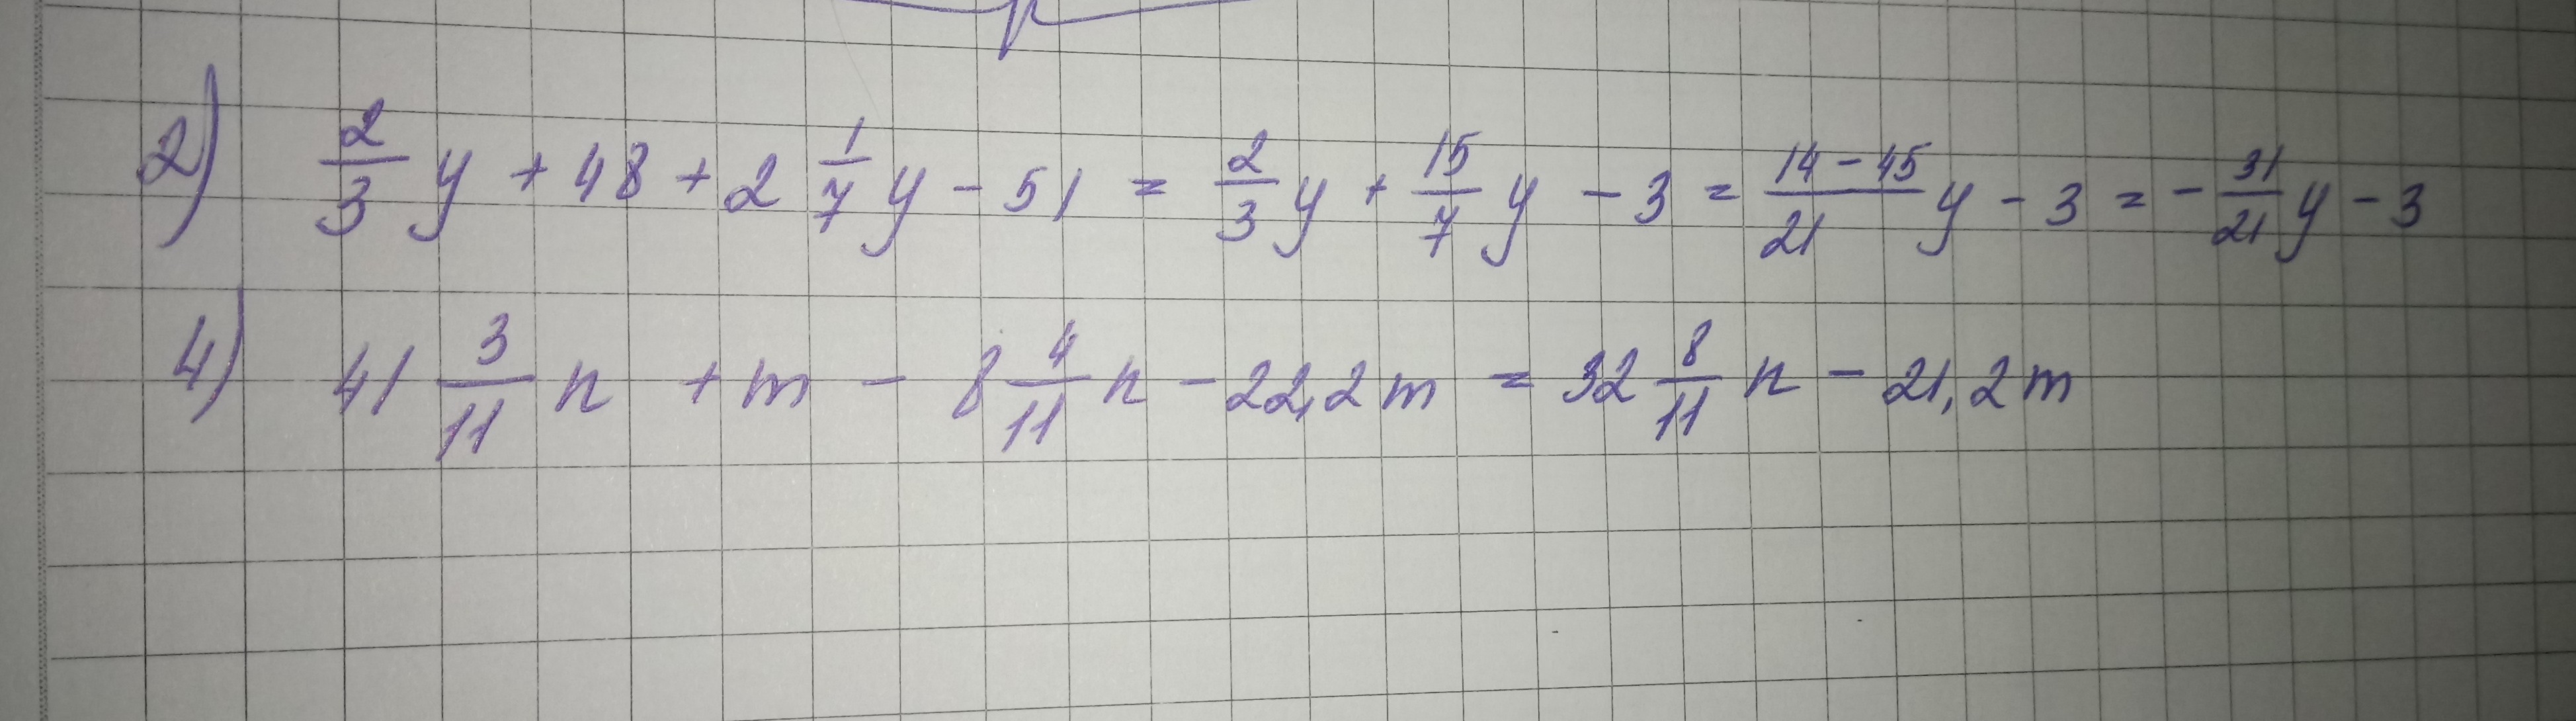 2) 2/3 y + 48 + 2 1/7 y - 51 = 2/3 y + 15/7 y - 3 = (14 - 45)/21 y - 3 = - 31/21 y - 3
4) 41 3/11 n + m - 8 4/11 n - 22,2m = 32 8/11 n - 21,2m